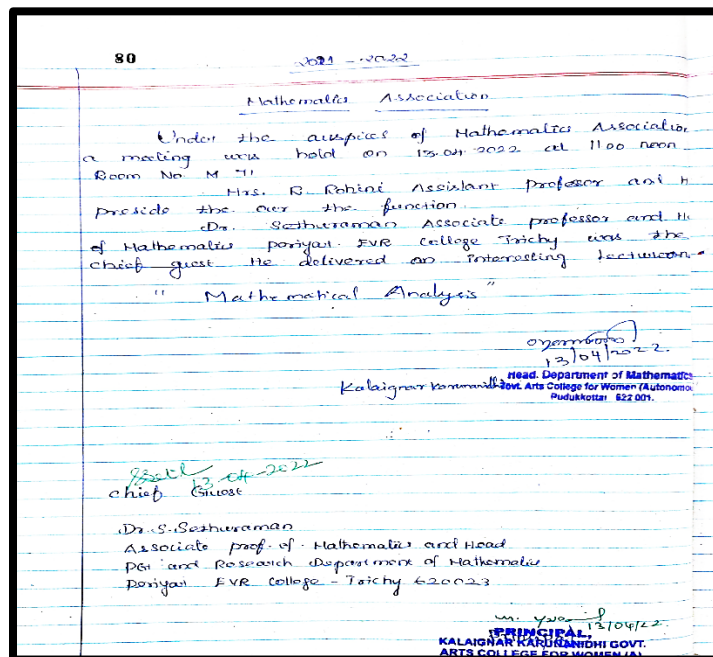 80
2021 - 2022
Mathematics Association
Under the auspices of Mathematics Association
a meeting was hold on 13.04.2022 at 11 00 noon
Room No. M
Mrs. R. Rohini Assistant professor and H
preside the over the function.
Dr. Sethuraman Associate professor and H
of Mathematics periyar EVR college Trichy was the
chief guest He delivered an interesting lecture on
" Mathematical Analysis "
13/04/2022.
Head. Department of Mathematics
Kalaignar Karunanidhi Govt. Arts College for Women (Autonomo
Pudukkottai 622 001.
13-04-2022
chief Guest
Dr. S. Sethuraman
Associate prof. of. Mathematics and Head
PG and Research Department of Mathematics
Periyar EVR College - Trichy 620023
13/04/22
PRINCIPAL,
KALAIGNAR KARUNANIDHI GOVT.
ARTS COLLEGE FOR WOMEN (A)